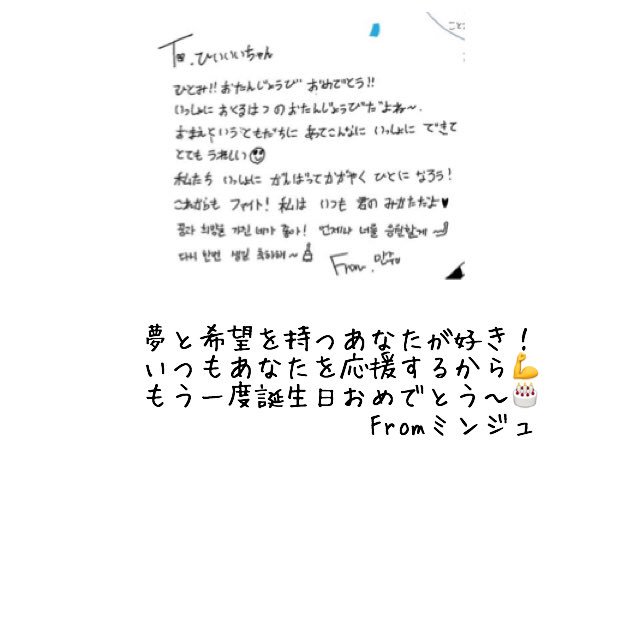 To. ひぃぃぃちゃん
ひとみ!! おたんじょうび おめでとう!!
いっしょに おくるはつのおたんじょうびだよね〜.
おまえというともだちに あてこんなに いっしょに できて
とても うれしい
私たち いっしょに がんばってかがやく ひとに なろう!
これからも ファイト! 私は いつも 君の みかただよ♥
꿈과 희망을 가진 네가 좋아! 언제나 너를 응원할게~
다시 한번 생일 축하해~
From. 민주
夢と希望を持つあなたが好き!
いつもあなたを応援するから💪
もう一度誕生日おめでとう〜🎂
Fromミンジュ